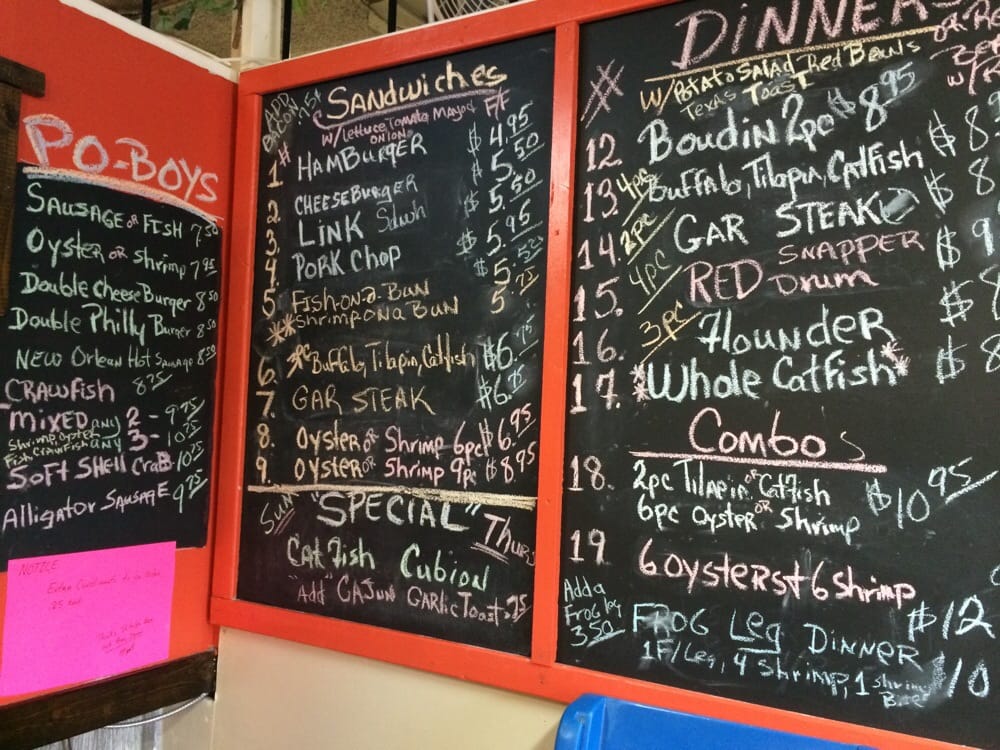 PO-BOYS
SAUSAGE or FISH 7.50
OYSTER OR Shrimp 7.95
Double Cheese Burger 8.50
Double Philly Burger 8.50
NEW Orlean Hot Sausage 8.50
CRAWFISH 8.75
MIXED any 2 - 9.75
Shrimp, Oyster
Fish, CRAWFISH any 3 - 10.75
SOFT SHELL CRAB 10.25
Alligator SAUSAGE 9.75
NOTICE
Sandwiches
W/Lettuce Tomato Mayo F/F
ONION
1. HAMBURGER $4.95
2. CHEESEBURGER 5.50
3. LINK $5.50
4. PORK CHOP $5.95
5. FISH ON A BUN $5.50
** Shrimp ON A BUN 5.75
6. 3pc Buffalo, Tilapia, Catfish $6.75
7. GAR STEAK $6.
8. OYSTER or Shrimp 6pc $6.95
9. OYSTER or Shrimp 9pc $8.95
Sun "SPECIAL" Thurs
CATFISH Cubion
"Add" CAJUN GARLIC Toast .75
DINNERS
# W/POTATO SALAD, Red BEANS
TEXAS TOAST
12. Boudin 2pc $8.95
13. 4pc Buffalo, Tilapia, Catfish $8
14. 2pc GAR STEAK $8
15. 4pc RED SNAPPER $9
DRUM
16. 3pc Flounder $8
17. *Whole Catfish* $8
Combos
18. 2pc Tilapia or Catfish $10.95
6pc OYSTER or Shrimp
19 6 OYSTERS + 6 shrimp
Add a
Frog leg
3.50
FROG Leg DINNER $12
1 F/Leg, 4 Shrimp, 1 shrimp 10